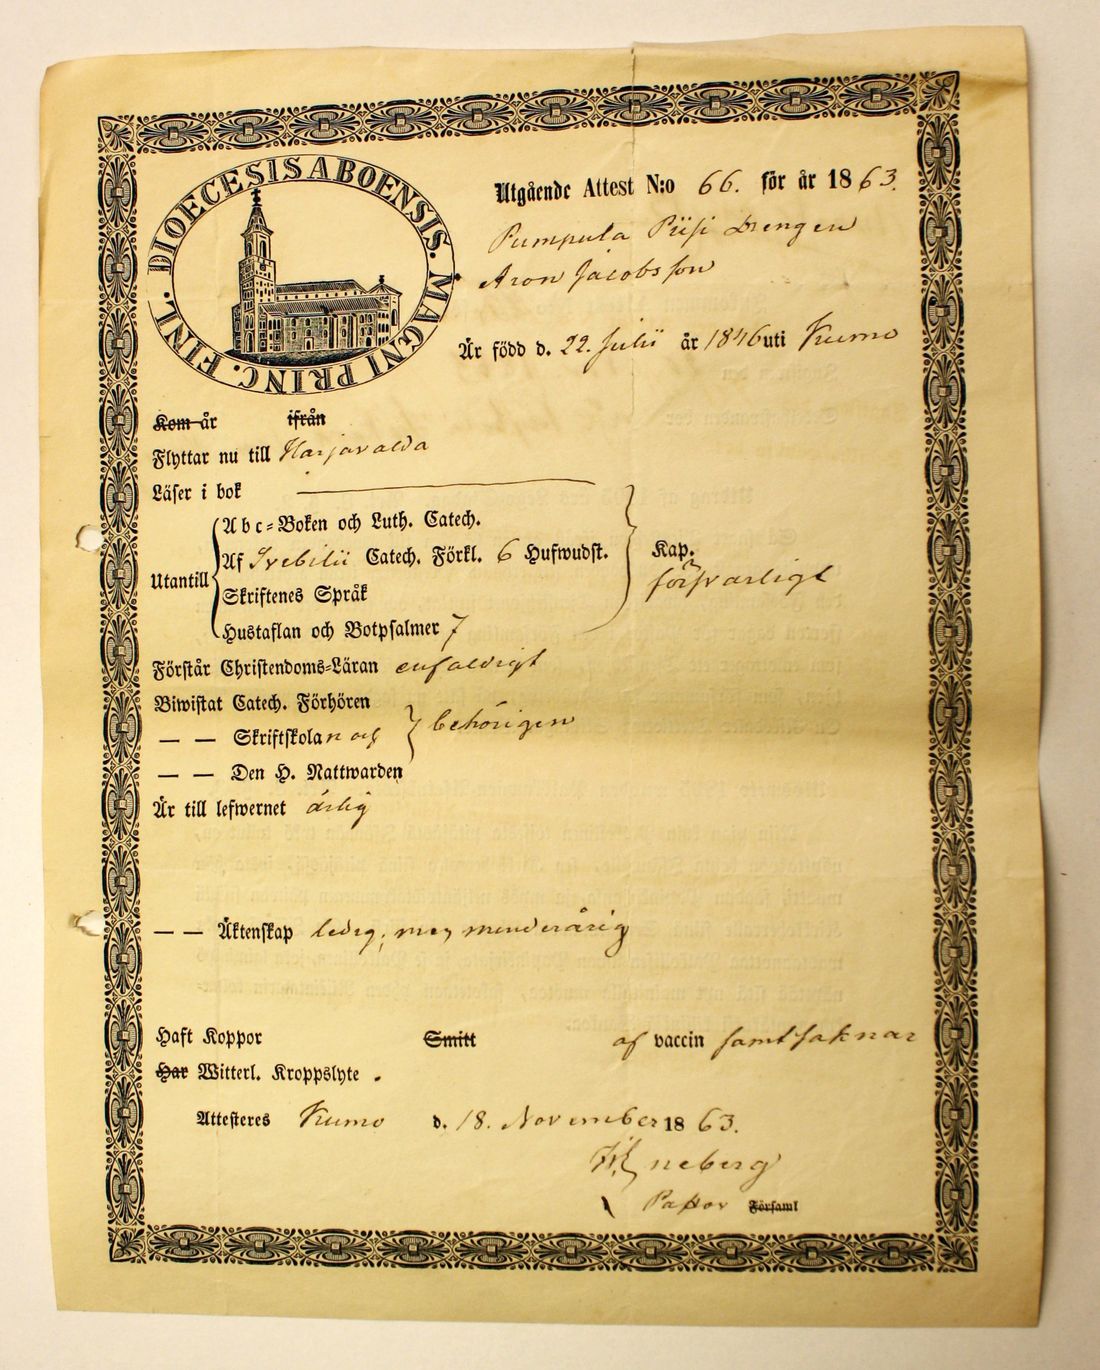 DIOECESIS ABOENSIS. MAGNI PRINC. FINL.
Utgående Attest N:o 66. för år 1863.
Pumpula Piisi Drengen
Aron Jacobsson
Är född d. 22. Julii år 1846 uti Kumo
Kom år ifrån
Flyttar nu till Harjavalda
Läser i bok
Utantill
Abc=Boken och Luth. Catech.
Af Svebilii Catech. Förkl. 6 Hufwudst.
Skriftenes Språk
Hustaflan och Botpsalmer 7
Kap.
försvarligt
Förstår Christendoms=Läran enfaldigt
Biwistat Catech. Förhören
— — Skriftskolan och
— — Den H. Nattwarden
behörigen
Är till lefwernet ärlig
— — Äktenskap ledig, men minderårig
Haft Koppor Smitt af vaccin samt saknar
Har Witterl. Kroppslyte.
Attesteres Kumo d. 18. November 1863.
Pastor Församl